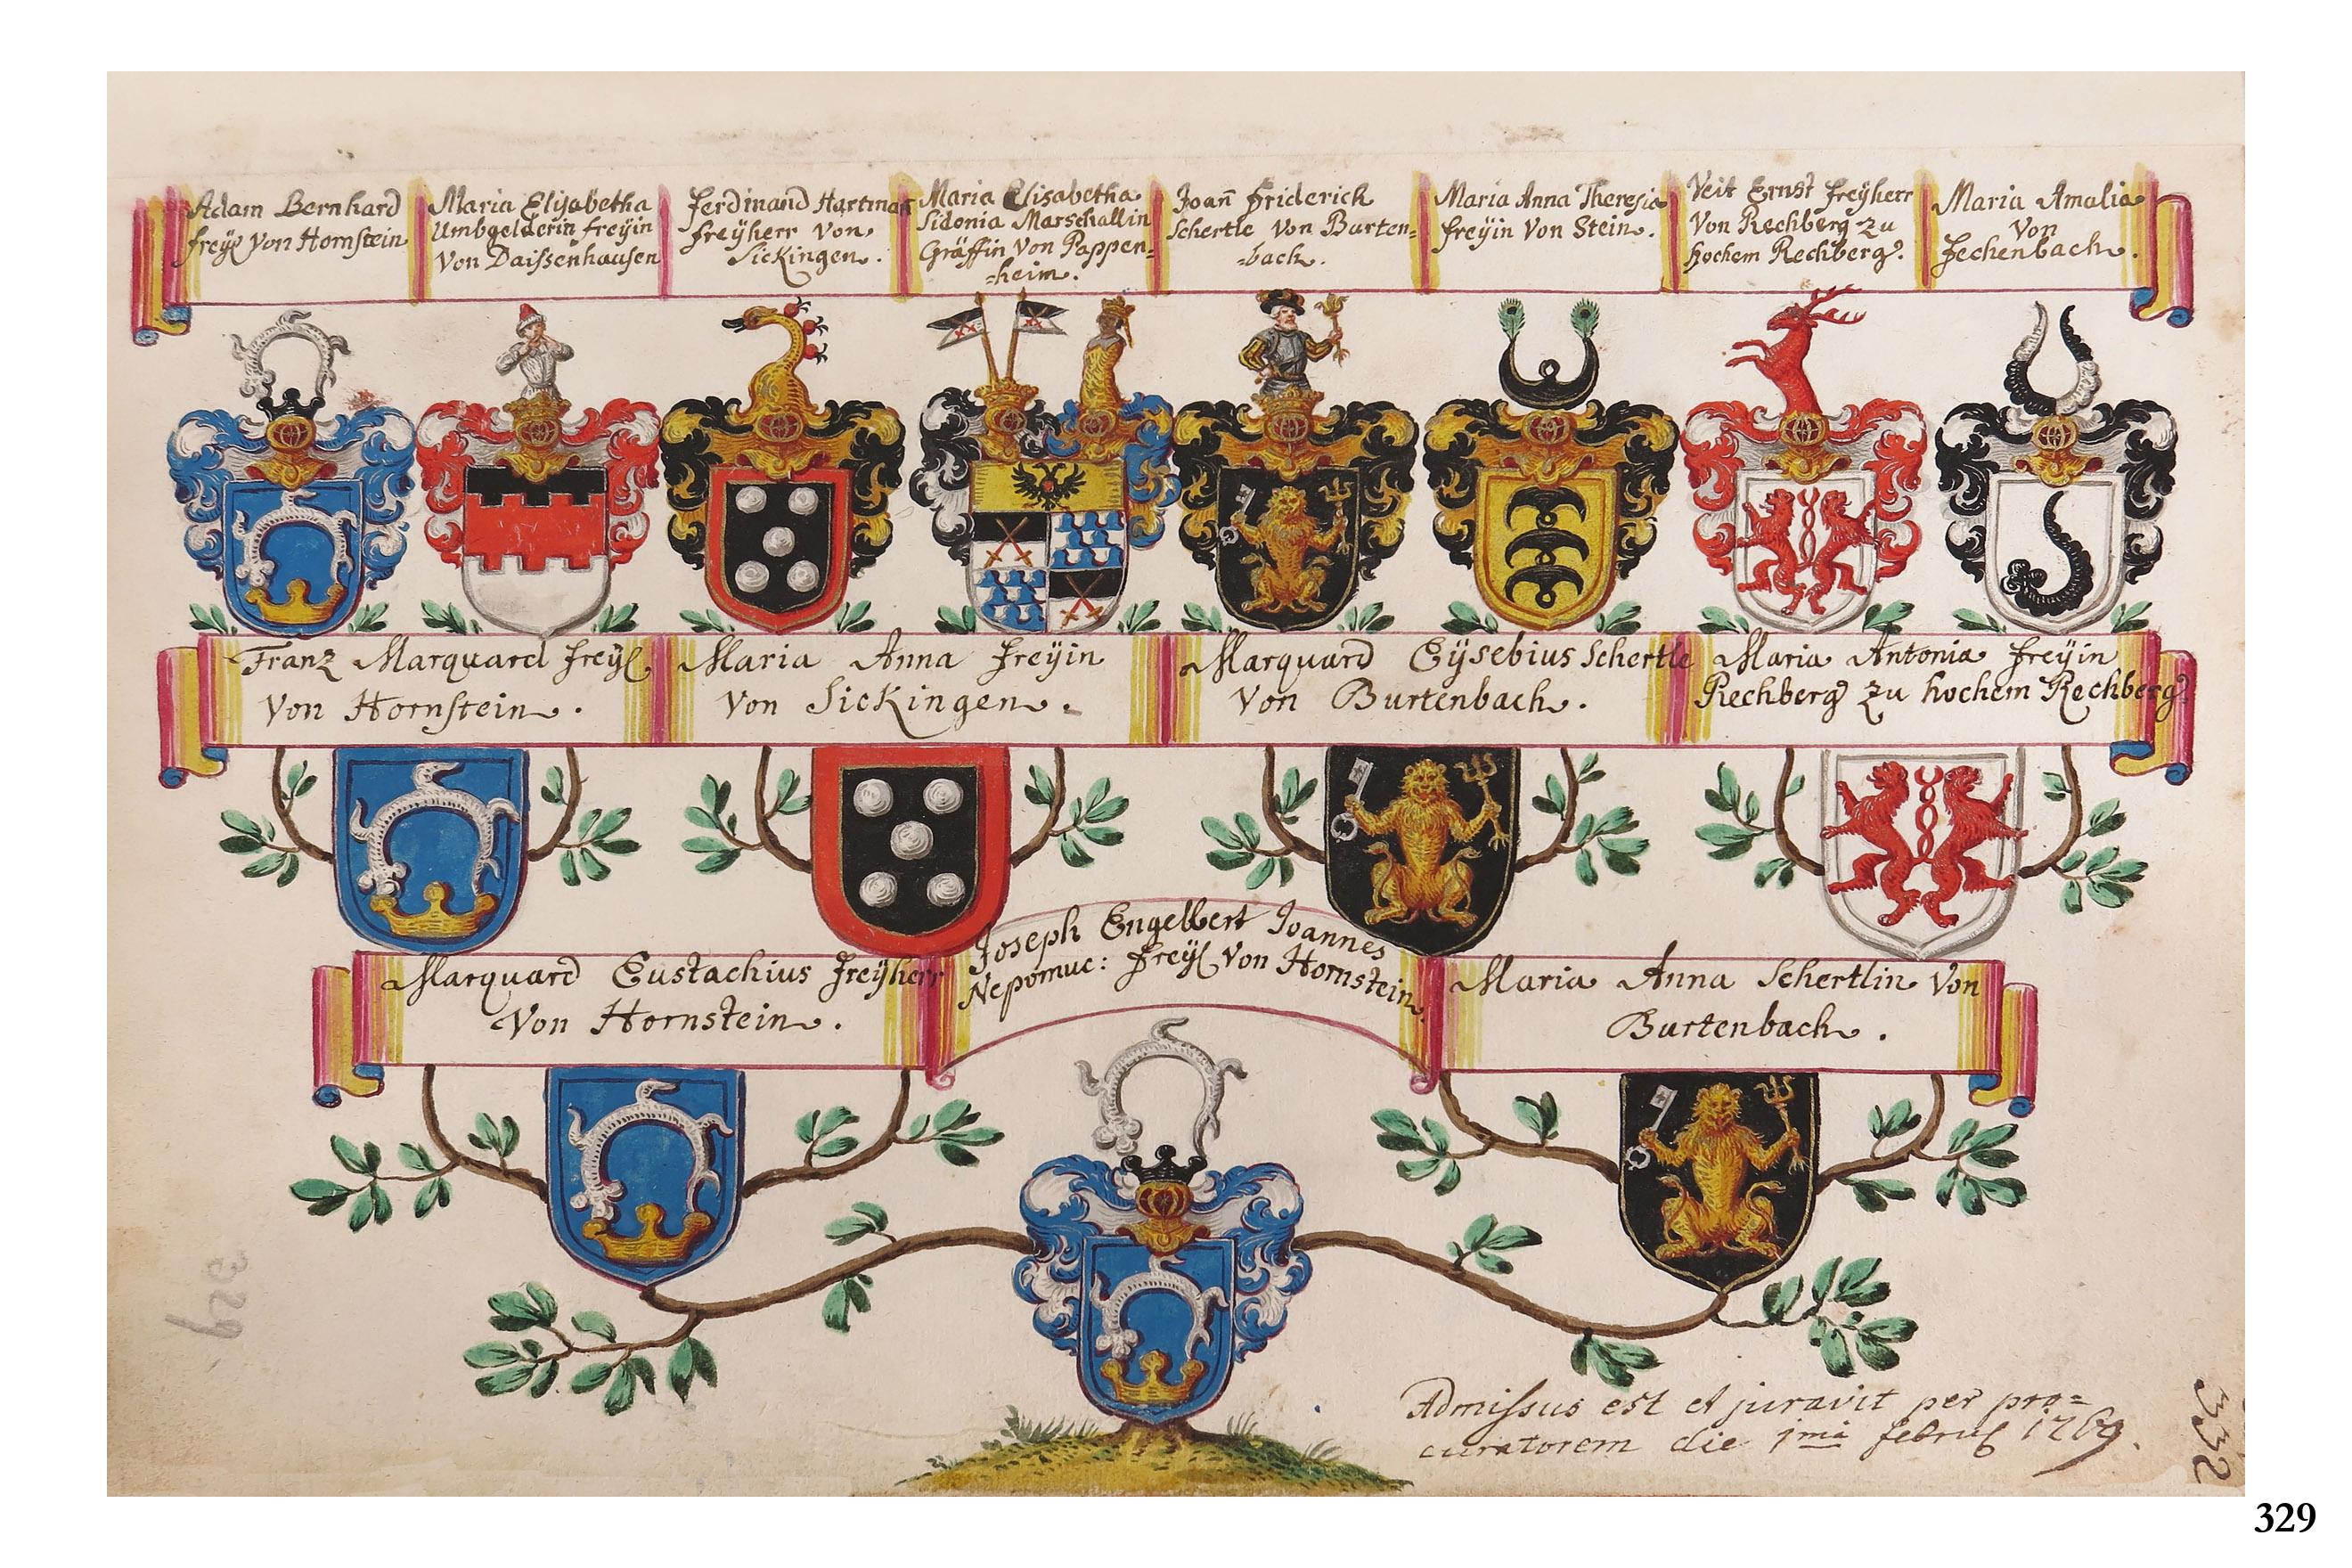 Adam Bernhard
freyl von Hornstein
Maria Elisabetha
Umbgelderin freyin
von Daissenhausen
Ferdinand Hartman
freyherr von
Sickingen.
Maria Elisabetha
Sidonia Marschallin
Gräffin von Pappen=
=heim.
Joan̄ Friderick
Schertle von Burten=
=bach.
Maria Anna Theresia
freyin von Stein.
Veit Ernst freyherr
von Rechberg zu
hochem Rechberg.
Maria Amalia
von
Fechenbach.
Franz Marquard freyl
von Hornstein.
Maria Anna freyin
von Sickingen.
Marquard Eysebius Schertle
von Burtenbach.
Maria Antonia freyin
Rechberg zu hochem Rechberg.
Marquard Eustachius freyherr
von Hornstein.
Joseph Engelbert Joannes
Nepomuc: freyl von Hornstein.
Maria Anna Schertlin von
Burtenbach.
329
Admissus est et juravit per pro=
curatorem die 1mâ februl 1769.
332
329